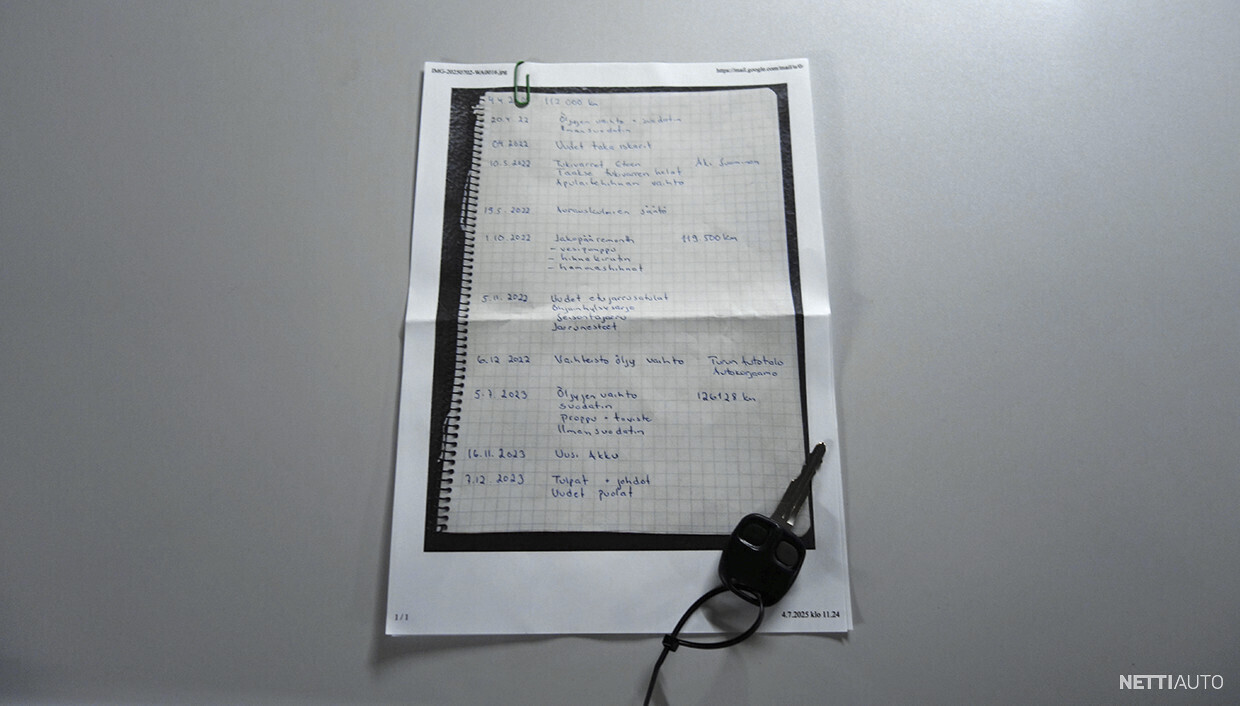 IMG-20250702-WA0016.jpg https://mail.google.com/mail/u/0/
112 000 km
20.4. 22 Öljyjen vaihto + suodatin
Ilmansuodatin
04.2022 Uudet taka iskarit
10.5.2022 Tukivarret eteen Aki
Taakse tukivarren helat
Apulaitehihnan vaihto
19.5. 2022 Aurauskulmien säätö
1.10.2022 Jakopää remontti 119 500 km
- vesipumppu
- hihnakiristin
- hammashihnat
5.11. 2022 Uudet etujarrusatulat
Seisontajarru
Jarrunesteet
6.12 2022 Vaihteisto öljy vaihto Turun Autotalo
Autokorjaamo
5.7. 2023 Öljyjen vaihto 126128 km
suodatin
proppu + tiiviste
Ilmansuodatin
16.11.2023 Uusi Akku
7.12 2023 Tulpat + johdot
Uudet puolat
1 / 1 4.7.2025 klo 11.24
NETTIAUTO